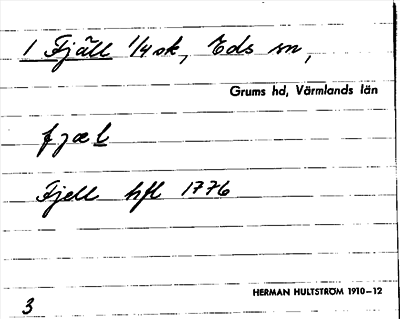 1 Fjäll 1/4 sk, Eds sn,
Grums hd, Värmlands län
fjæl
Fjell hfl 1776
HERMAN HULTSTRÖM 1910–12
3